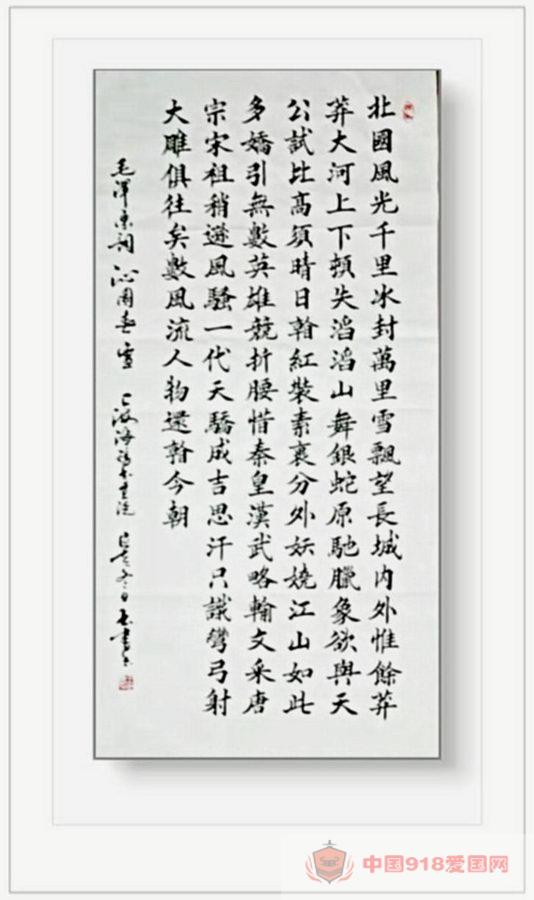 北國風光千里冰封萬里雪飄望長城內外惟餘莽
莽大河上下頓失滔滔山舞銀蛇原馳臘象欲與天
公試比高須晴日看紅裝素裹分外妖嬈江山如此
多嬌引無數英雄競折腰惜秦皇漢武略輸文采唐
宗宋祖稍遜風騷一代天驕成吉思汗只識彎弓射
大雕俱往矣數風流人物還看今朝
毛澤東詞 沁園春 雪
中国918爱国网